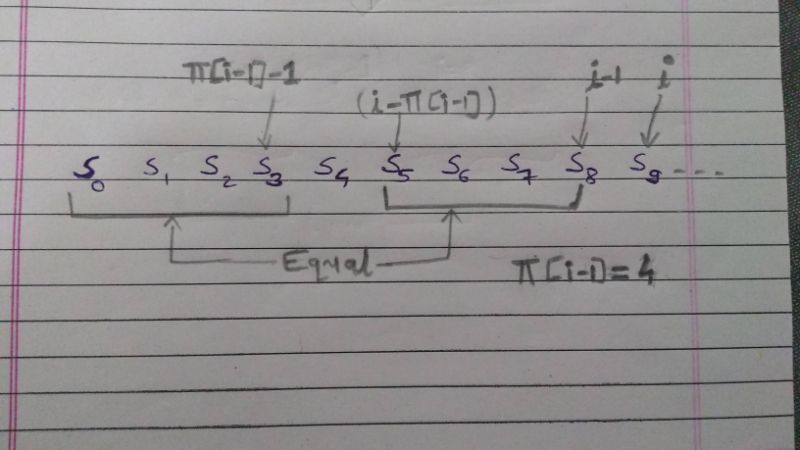 π[i-1]-1
i-1 i
(i-π[i-1])
S₀ S₁ S₂ S₃ S₄ S₅ S₆ S₇ S₈ S₉ ----
Equal
π[i-1]=4